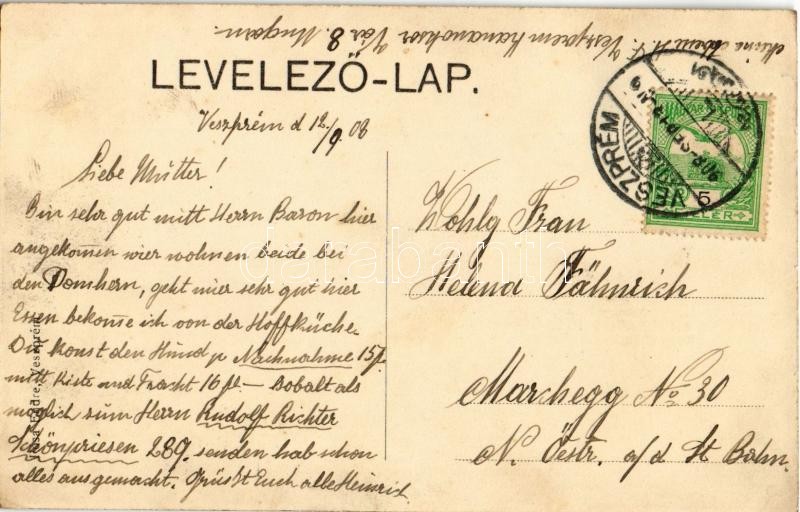 meine Adresse H. F. Veszprem kanonoksor Vár 8. Ungarn.
LEVELEZŐ-LAP.
Veszprém d 12/9 08
Liebe Mutter!
Bin sehr gut mitt Herrn Baron hier
angekom̄en wier wohnen beide bei
den Domhern, geht mier sehr gut hier
Essen bekom̄e ich von der Hoffküche.
Du konst den Hund p Nachnahme 15f.
mitt Kiste und Fracht 16 fl – Bobalt als
möglich zum Herrn Rudolf Richter
Schönpriesen 289. senden hab schon
alles ausgemacht. Grüsst Euch alle Heinrich
Wohlg Frau
Helena Fähnrich
Marchegg No 30
N. Östr. a/d St Bahn.
VESZPRÉM
908 SEP 12
MAGYAR
5
Veszprém
darabanth